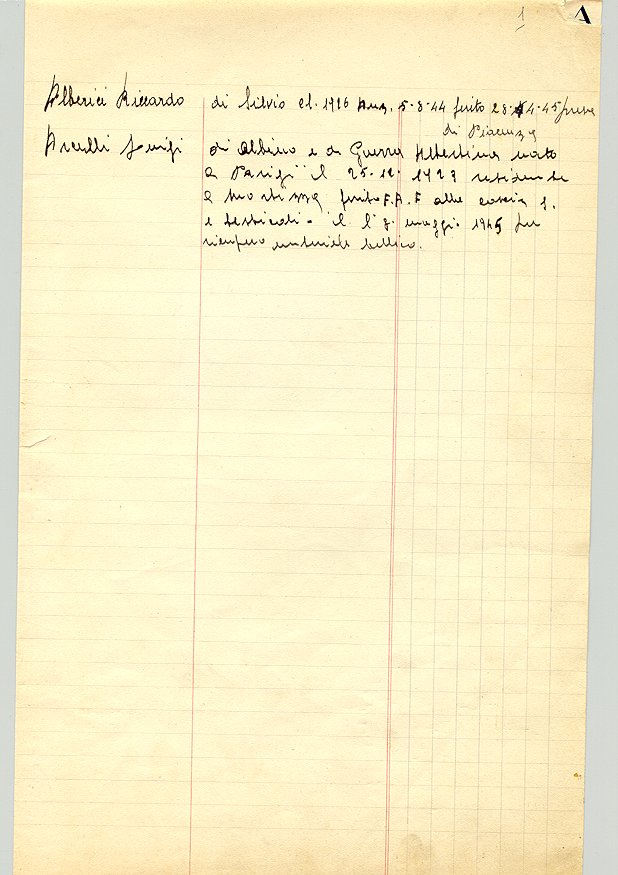 1
A
Alberici Riccardo di Silvio cl. 1926 Anz. 5-8-44 ferito 28-4-45 presa
di Piacenza
Luigi di Albino e da Guerra Albertina nato
a Parigi il 25-12-1923 residente
a ferito F.A.F alla coscia
e testicoli - il maggio 1945 per
ricupero materiale bellico.